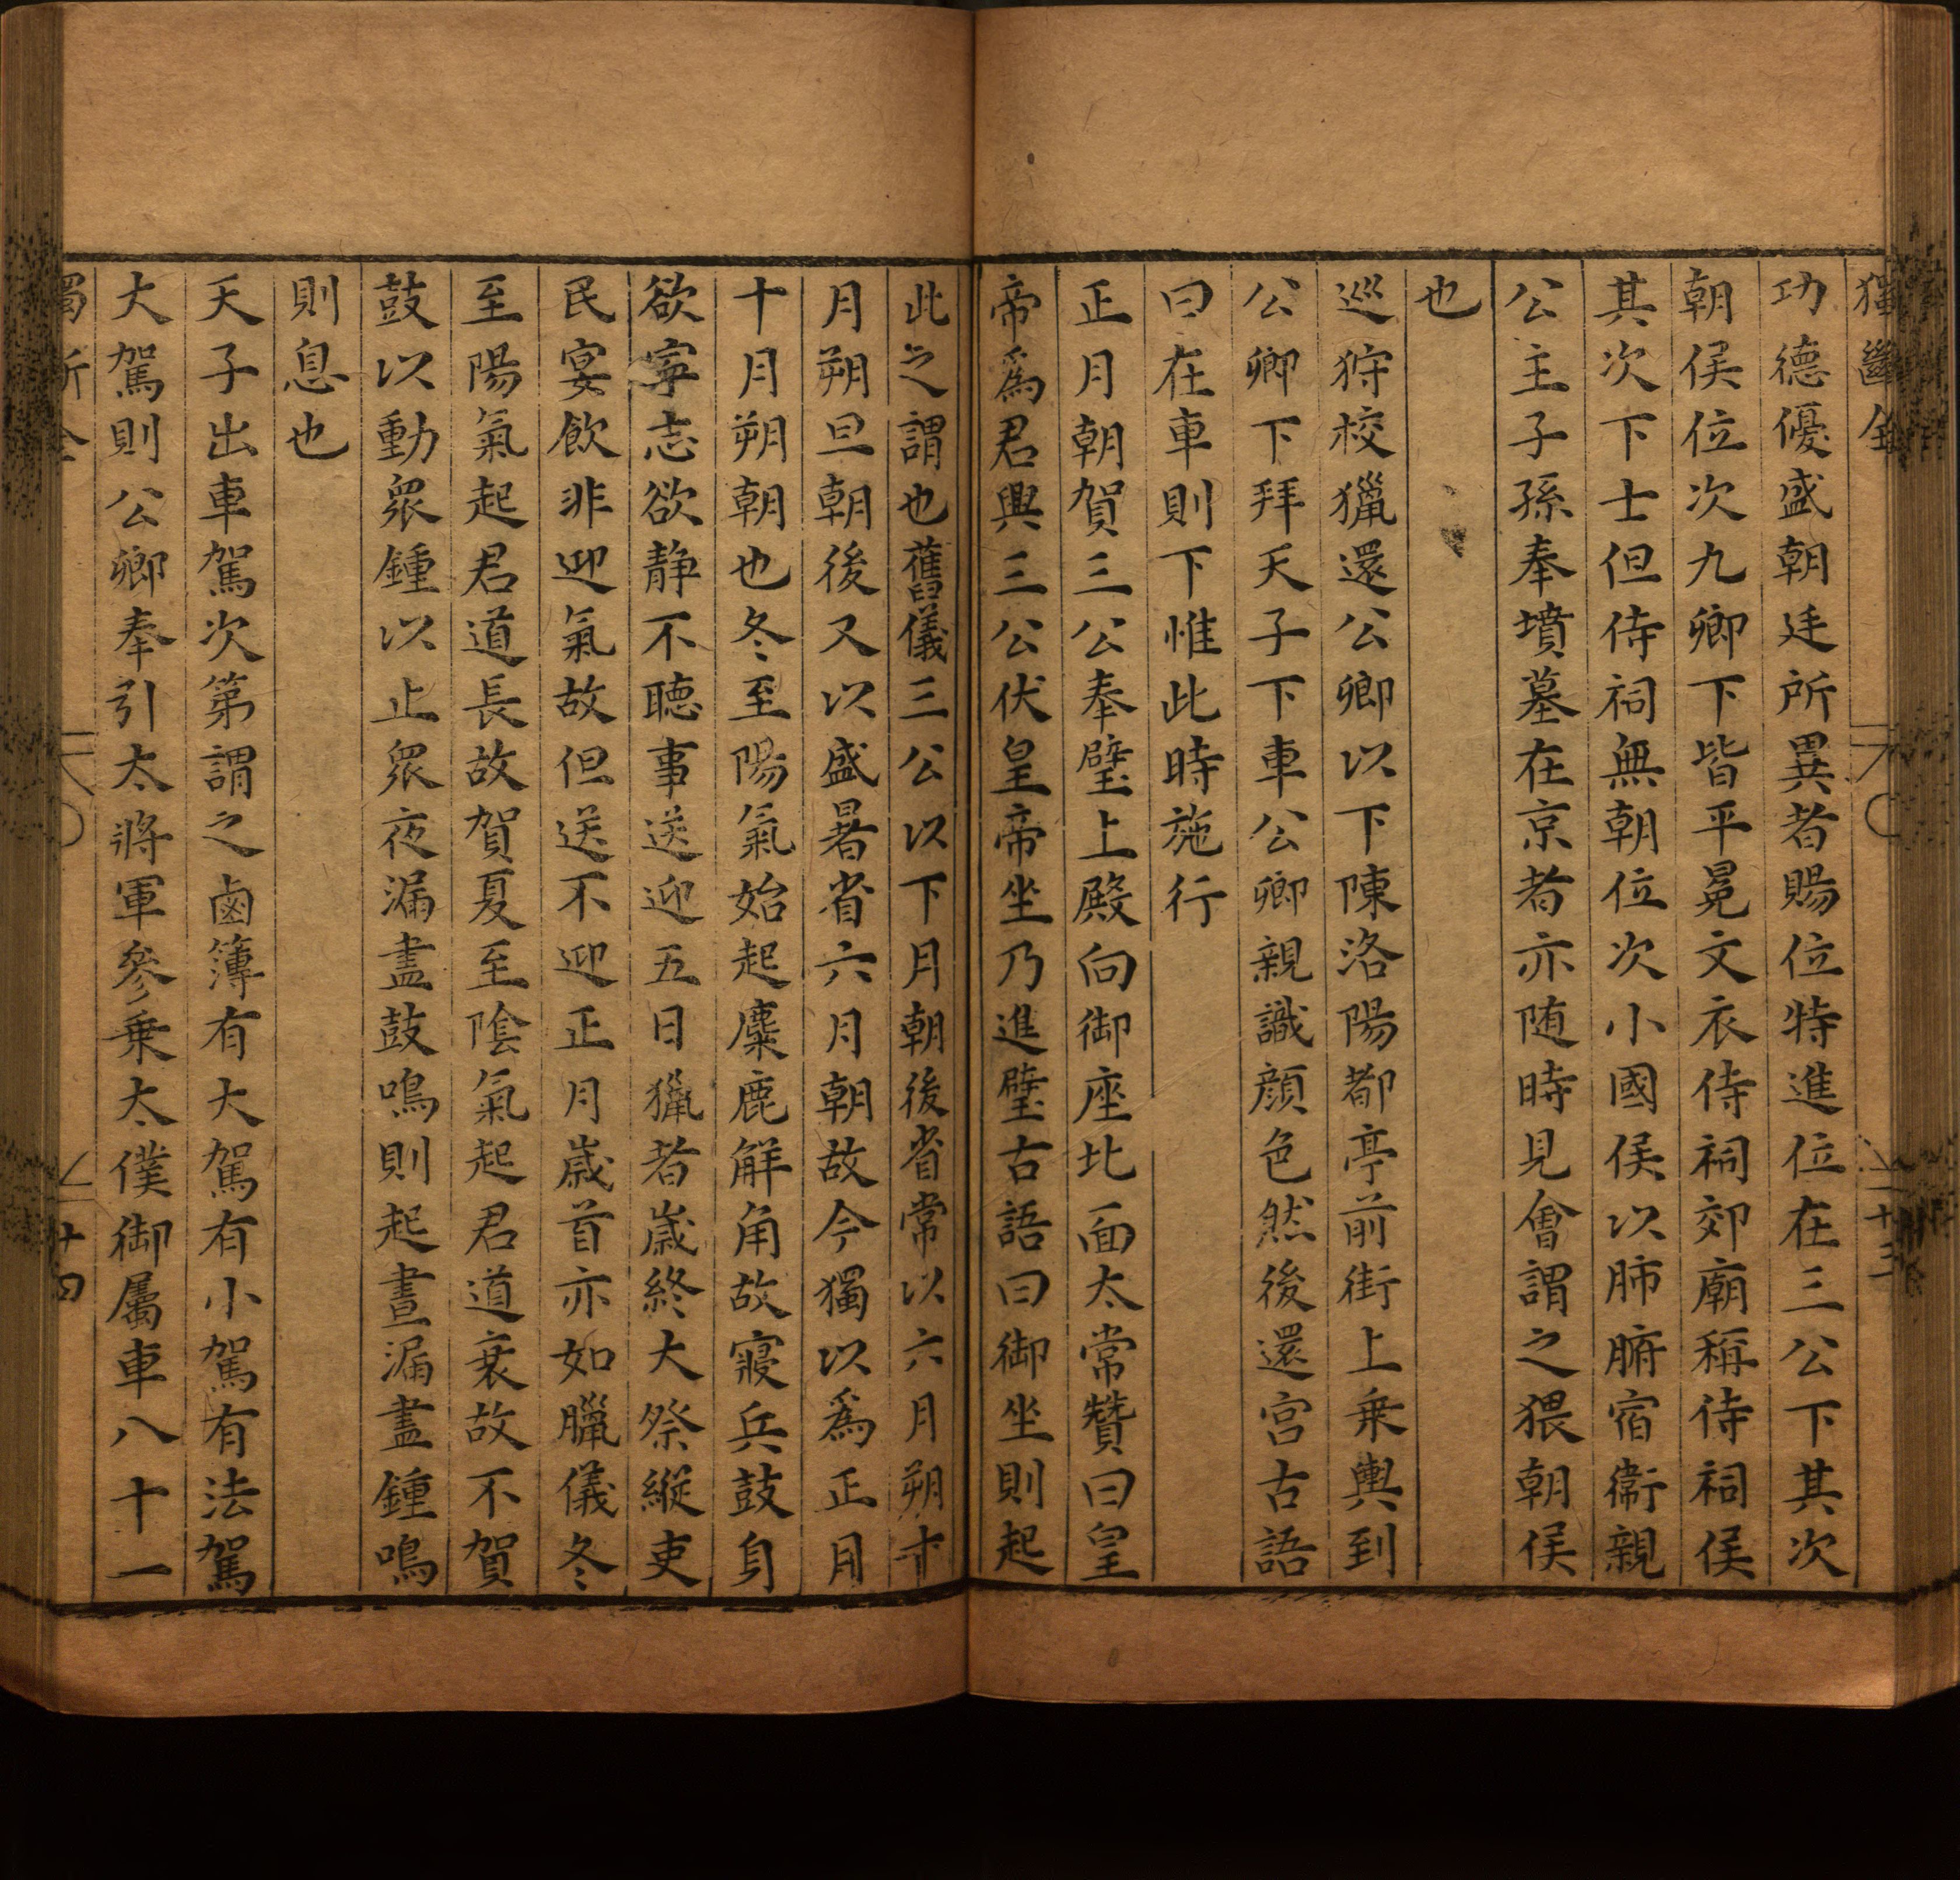 獨斷全
十三
功德優盛朝廷所異者賜位特進位在三公下其次
朝侯位次九卿下皆平冕文衣侍祠郊廟稱侍祠侯
其次下士但侍祠無朝位次小國侯以肺腑宿衞親
公主子孫奉墳墓在京者亦随時見會謂之猥朝侯
也
巡狩校獵還公卿以下陳洛陽都亭前街上乗輿到
公卿下拜天子下車公卿親識顔色然後還宫古語
曰在車則下惟此時施行
正月朝賀三公奉璧上殿向御座北面太常贊曰皇
帝為君興三公伏皇帝坐乃進璧古語曰御坐則起
此之謂也舊儀三公以下月朝後省常以六月朔十
月朔旦朝後又以盛暑省六月朝故今獨以為正月
十月朔朝也冬至陽氣始起麋鹿解角故寢兵鼓身
欲寧志欲静不聴事送迎五日獵者嵗終大祭縱吏
民宴飲非迎氣故但送不迎正月嵗首亦如臘儀冬
至陽氣起君道長故賀夏至陰氣起君道衰故不賀
鼓以動衆鍾以止衆夜漏盡鼓鳴則起晝漏盡鍾鳴
則息也
天子出車駕次第謂之鹵簿有大駕有小駕有法駕
大駕則公卿奉引大將軍參乗太僕御屬車八十一
十四